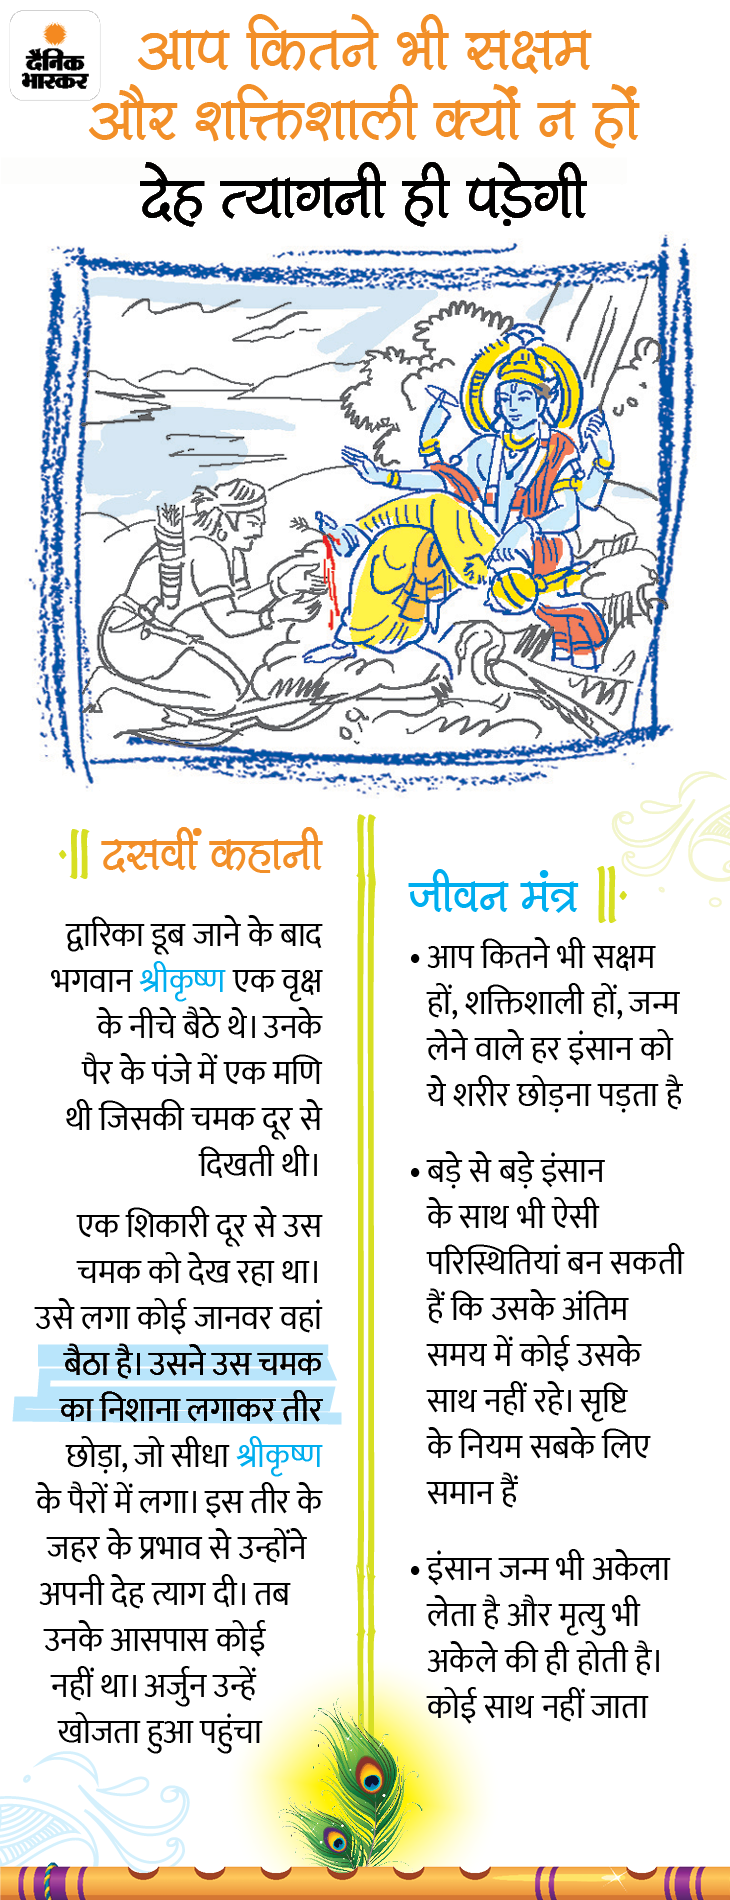 दैनिक
भास्कर
आप कितने भी सक्षम
और शक्तिशाली क्यों न हों
देह त्यागनी ही पड़ेगी
दसवीं कहानी
द्वारिका डूब जाने के बाद
भगवान श्रीकृष्ण एक वृक्ष
के नीचे बैठे थे। उनके
पैर के पंजे में एक मणि
थी जिसकी चमक दूर से
दिखती थी।
एक शिकारी दूर से उस
चमक को देख रहा था।
उसे लगा कोई जानवर वहां
बैठा है। उसने उस चमक
का निशाना लगाकर तीर
छोड़ा, जो सीधा श्रीकृष्ण
के पैरों में लगा। इस तीर के
जहर के प्रभाव से उन्होंने
अपनी देह त्याग दी। तब
उनके आसपास कोई
नहीं था। अर्जुन उन्हें
खोजता हुआ पहुंचा
जीवन मंत्र
• आप कितने भी सक्षम
हों, शक्तिशाली हों, जन्म
लेने वाले हर इंसान को
ये शरीर छोड़ना पड़ता है
• बड़े से बड़े इंसान
के साथ भी ऐसी
परिस्थितियां बन सकती
हैं कि उसके अंतिम
समय में कोई उसके
साथ नहीं रहे। सृष्टि
के नियम सबके लिए
समान हैं
• इंसान जन्म भी अकेला
लेता है और मृत्यु भी
अकेले की ही होती है।
कोई साथ नहीं जाता